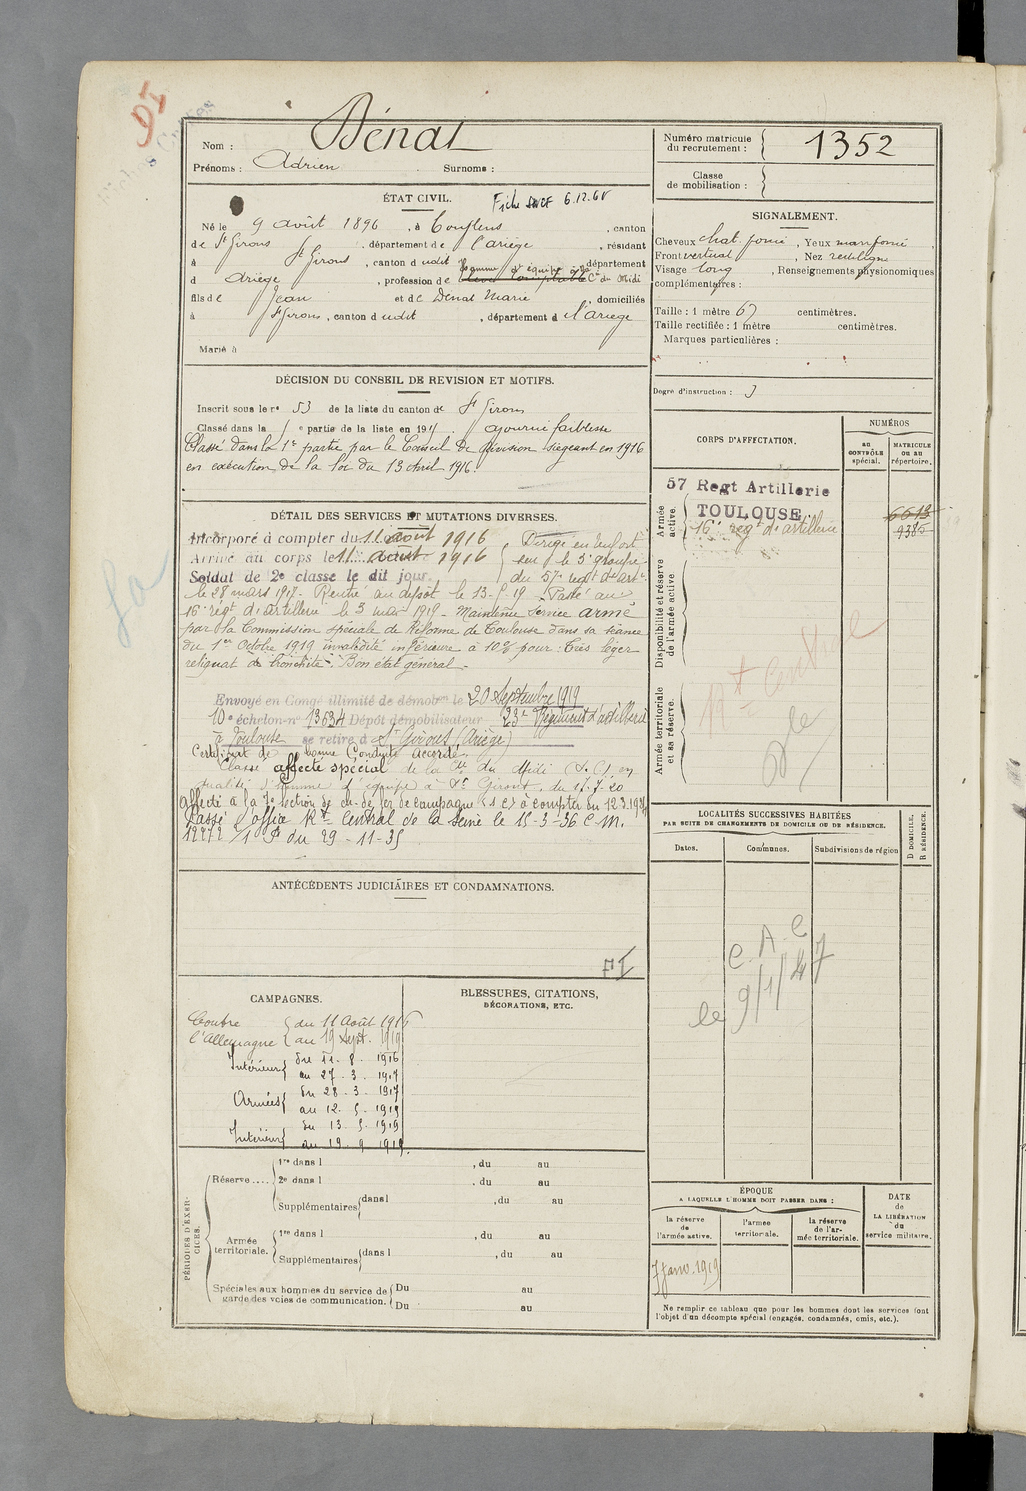 95
Nom : Dénat
Prénoms : Adrien Surnoms :
Numéro matricule du recrutement : 1352
Classe de mobilisation :
ÉTAT CIVIL.
Fiche SNCF 6.12.65
Né le 9 août 1896, à Couflens, canton
de St Girons, département de l'ariège, résidant
à St Girons, canton dudit, département
d ariège, profession de homme d'équipe à la Cie du Midi
fils de Jean et de Dénat Marie, domiciliés
à St Girons, canton dudit, département d l'ariège
Marié à
SIGNALEMENT.
Cheveux chat. foncé, Yeux marr foncé
Front vertical, Nez rectiligne
Visage long, Renseignements physionomiques
complémentaires :
Taille : 1 mètre 67 centimètres.
Taille rectifiée : 1 mètre centimètres.
Marques particulières :
Degré d'instruction : 3
DÉCISION DU CONSEIL DE REVISION ET MOTIFS.
Inscrit sous le no 53 de la liste du canton de St Girons
Classé dans la e partie de la liste en 191 ajourné faiblesse
Classé dans la 1e partie par le Conseil de Révision siégeant en 1916
en exécution de la loi du 13 Avril 1916.
CORPS D'AFFECTATION.
NUMÉROS
au CONTRÔLE spécial.
MATRICULE ou au répertoire.
Armée active.
57 Regt Artillerie
TOULOUSE. 6613
16e regt d'artillerie 9385
Disponibilité et réserve de l'armée active
Rt Central
Armée territoriale et sa réserve.
DÉTAIL DES SERVICES ET MUTATIONS DIVERSES.
Incorporé à compter du 11 août 1916
Arrivé au corps le 11 août 1916
Soldat de 2e classe le dit jour.
Dirigé en renfort
sur le 3e groupe
du 57e regt d'art.
le 28 mars 1917. Rentré au dépôt le 13-5-19. Passé au
16e regt d'artillerie le 3 mai 1919. Maintenu service armé
par la Commission spéciale de Réforme de Toulouse dans sa séance
du 1er Octobre 1919 invalidité inférieure à 10% pour : très léger
reliquat de bronchite. Bon état général.
Envoyé en Congé illimité de démobon le 20 Septembre 1919
10e échelon no 13634 Dépôt démobilisateur 23e Régiment d'artillerie
à Toulouse se retire à St Girons (Ariège)
Certificat de bonne Conduite accordé
Classé affecté spécial de la Cie du Midi en
qualité d'homme d'équipe à St Girons, du 17.7.20
Affecté à la 7e section de ch. de fer de campagne à compter du 12.3.
Classé d'office Rt Central de la Seine le 15-3-36 C.M.
12772 /1 P du 29-11-35
LOCALITÉS SUCCESSIVES HABITÉES
PAR SUITE DE CHANGEMENTS DE DOMICILE OU DE RÉSIDENCE.
Dates.
Communes.
Subdivisions de région
D DOMICILE.
R RÉSIDENCE.
C.A.C
le 9/1/47
ANTÉCÉDENTS JUDICIAIRES ET CONDAMNATIONS.
CAMPAGNES.
Contre l'Allemagne { du 11 Août 1916
au 19 Sept. 1919
Intérieur { du 11. 8. 1916
au 27. 3. 1917
Armées { du 28. 3. 1917
au 12. 5. 1919
Intérieur { du 13. 5. 1919
au 19. 9. 1919.
BLESSURES, CITATIONS,
DÉCORATIONS, ETC.
PÉRIODES D'EXERCICES.
Réserve....
1re dans l , du au
2e dans l , du au
Supplémentaires { dans l , du au
Armée territoriale.
1re dans l , du au
Supplémentaires { dans l , du au
Spéciales aux hommes du service de garde des voies de communication. { Du au
Du au
ÉPOQUE
A LAQUELLE L'HOMME DOIT PASSER DANS :
la réserve de l'armée active.
l'armée territoriale.
la réserve de l'armée territoriale.
DATE
de
LA LIBÉRATION
du
service militaire.
7 janv. 1919
Ne remplir ce tableau que pour les hommes dont les services font
l'objet d'un décompte spécial (engagés, condamnés, omis, etc.).